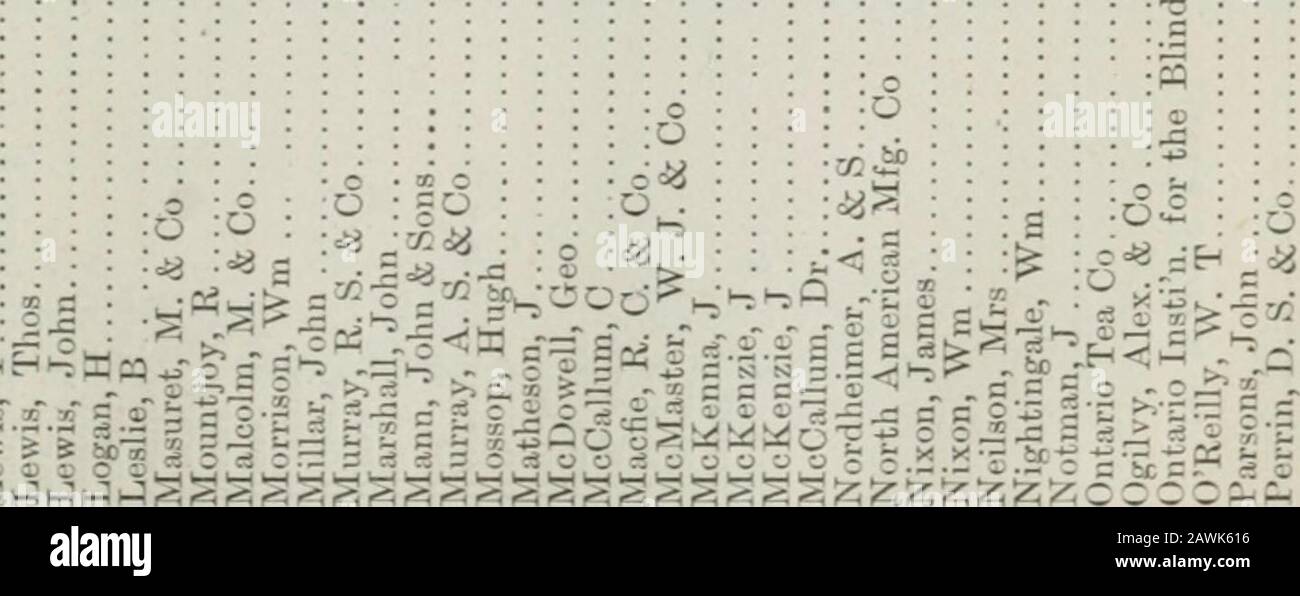 Lewis, Thos..........
Lewis, John..........
Logan, H..........
Leslie, B..........
Masuret, M. & Co..........
Mountjoy, R..........
Malcolm, M. & Co..........
Morrison, Wm..........
Millar, John..........
Murray, R. S. & Co..........
Marshall, John..........
Mann, John & Sons..........
Murray, A. S. & Co..........
Mossop, Hugh..........
Matheson, J..........
McDowell, Geo..........
McCallum, C..........
Macfie, R. C. & Co..........
McMaster, W. J. & Co..........
McKenna, J..........
McKenzie, J..........
McKenzie, J..........
McCallum, Dr..........
Nordheimer, A. & S..........
North American Mfg. Co..........
Nixon, James..........
Nixon, Wm..........
Neilson, Mrs..........
Nightingale, Wm..........
Notman, J..........
Ontario Tea Co..........
Ogilvy, Alex. & Co..........
Ontario Insti'n. for the Blind
O'Reilly, W. T..........
Parsons, John..........
Perrin, D. S. & Co..........
alamy
a
alamy
Image ID: 2AWK616
www.alamy.com